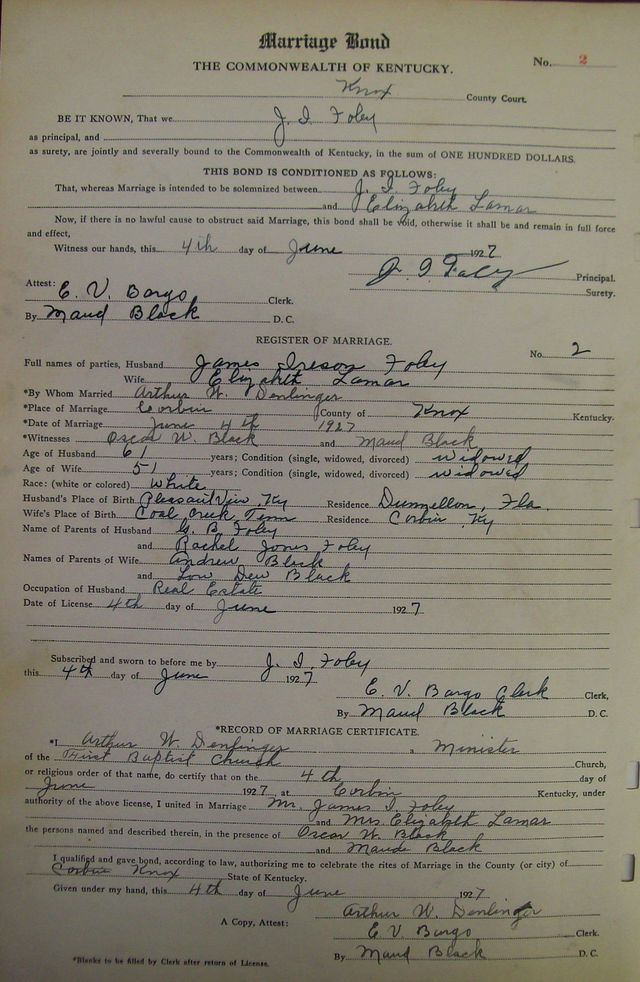 Marriage Bond
THE COMMONWEALTH OF KENTUCKY.
No. 2
Knox County Court.
BE IT KNOWN, That we J. I. Foley
as principal, and
as surety, are jointly and severally bound to the Commonwealth of Kentucky, in the sum of ONE HUNDRED DOLLARS.
THIS BOND IS CONDITIONED AS FOLLOWS:
That, whereas Marriage is intended to be solemnized between J. I. Foley
and Elizabeth Lamar
Now, if there is no lawful cause to obstruct said Marriage, this bond shall be void, otherwise it shall be and remain in full force
and effect,
Witness our hands, this 4th day of June 1927
J I Foley Principal.
Surety.
Attest:
E. V. Bargo Clerk.
By Maud Black D. C.
REGISTER OF MARRIAGE.
No. 2
Full names of parties, Husband James Ireson Foley
Wife Elizabeth Lamar
*By Whom Married Arthur W. Denlinger
*Place of Marriage Corbin County of Knox Kentucky.
*Date of Marriage June 4th 1927
*Witnesses Oscar W. Black and Maud Black
Age of Husband 61 years; Condition (single, widowed, divorced) widowed
Age of Wife 51 years; Condition (single, widowed, divorced) widowed
Race: (white or colored) White
Husband's Place of Birth Pleasant View, Ky Residence Dunnellon, Fla.
Wife's Place of Birth Coal Creek Tenn Residence Corbin, Ky
Name of Parents of Husband B. Foley
and Rachel Jones Foley
Names of Parents of Wife Andrew Black
and Low Dew Black
Occupation of Husband Real Estate
Date of License 4th day of June 1927
Subscribed and sworn to before me by J. I. Foley
this 4th day of June 1927
E. V. Bargo Clerk Clerk,
By Maud Black D. C.
*RECORD OF MARRIAGE CERTIFICATE.
*I Arthur W. Denlinger a Minister
of the First Baptist Church Church,
or religious order of that name, do certify that on the 4th day of
June 1927 at Corbin Kentucky, under
authority of the above license, I united in Marriage Mr. James I. Foley
and Mrs. Elizabeth Lamar
the persons named and described therein, in the presence of Oscar W. Black
and Maude Black
I qualified and gave bond, according to law, authorizing me to celebrate the rites of Marriage in the County (or city) of
Corbin Knox State of Kentucky.
Given under my hand, this 4th day of June 1927
Arthur W. Denlinger
A Copy, Attest: E. V. Bargo Clerk.
By Maud Black D. C.
*Blanks to be filled by Clerk after return of License.